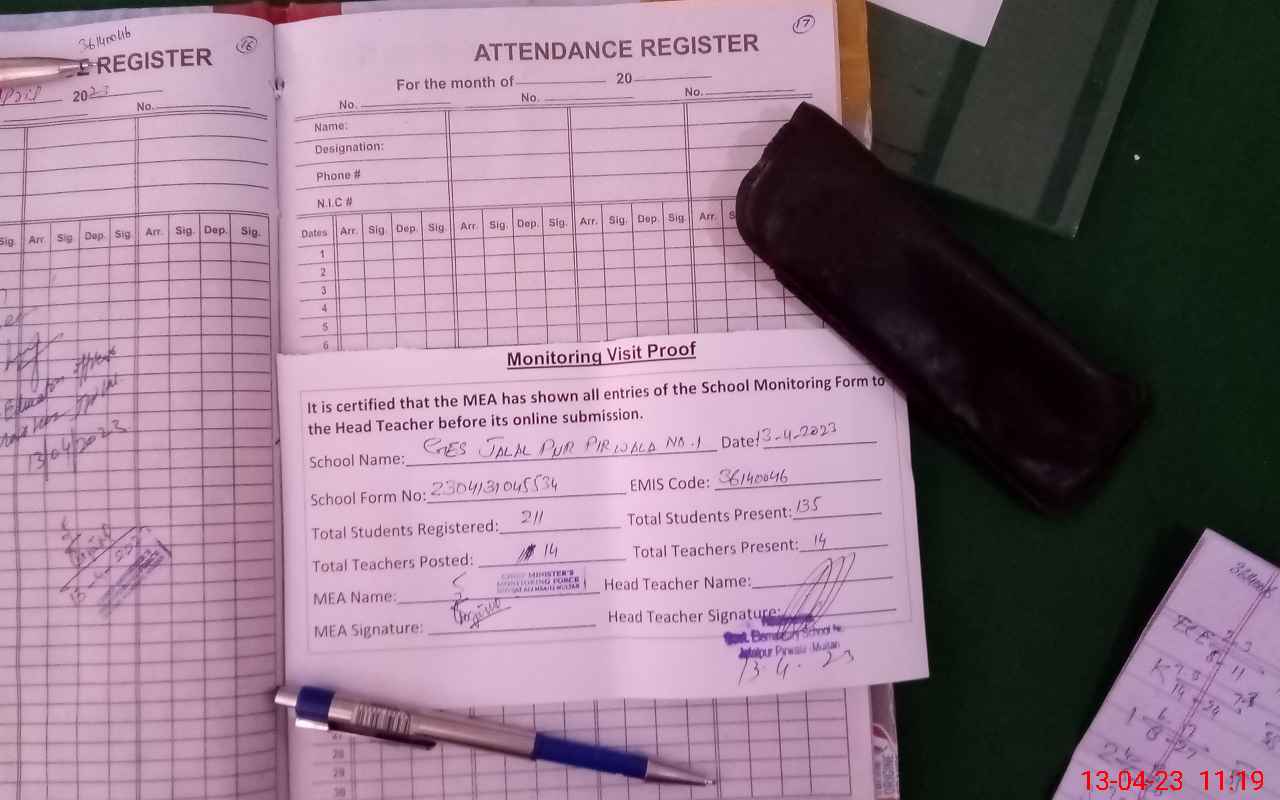 36140046
REGISTER
16
April 2023
No.
Sig. Arr. Sig. Dep. Sig. Arr. Sig. Dep. Sig.
13/04/2023
17
ATTENDANCE REGISTER
For the month of 20
No. No. No.
Name:
Designation:
Phone #
N.I.C #
Dates Arr. Sig. Dep. Sig. Arr. Sig. Dep. Sig. Arr. Sig. Dep. Sig. Arr.
1
2
3
4
5
6
Monitoring Visit Proof
It is certified that the MEA has shown all entries of the School Monitoring Form to
the Head Teacher before its online submission.
School Name: GES JALAL PUR PIRWALA NO.1 Date: 13-4-2023
School Form No: 2304131045534 EMIS Code: 36140046
Total Students Registered: 211 Total Students Present: 135
Total Teachers Posted: 14 Total Teachers Present: 14
CHIEF MINISTER'S
MONITORING FORCE
MEA Name: Head Teacher Name:
MEA Signature: Head Teacher Signature:
Govt. Elementary School No.
Jalalpur Pirwala Multan
13.4.23
28
29
30
13-04-23 11:19